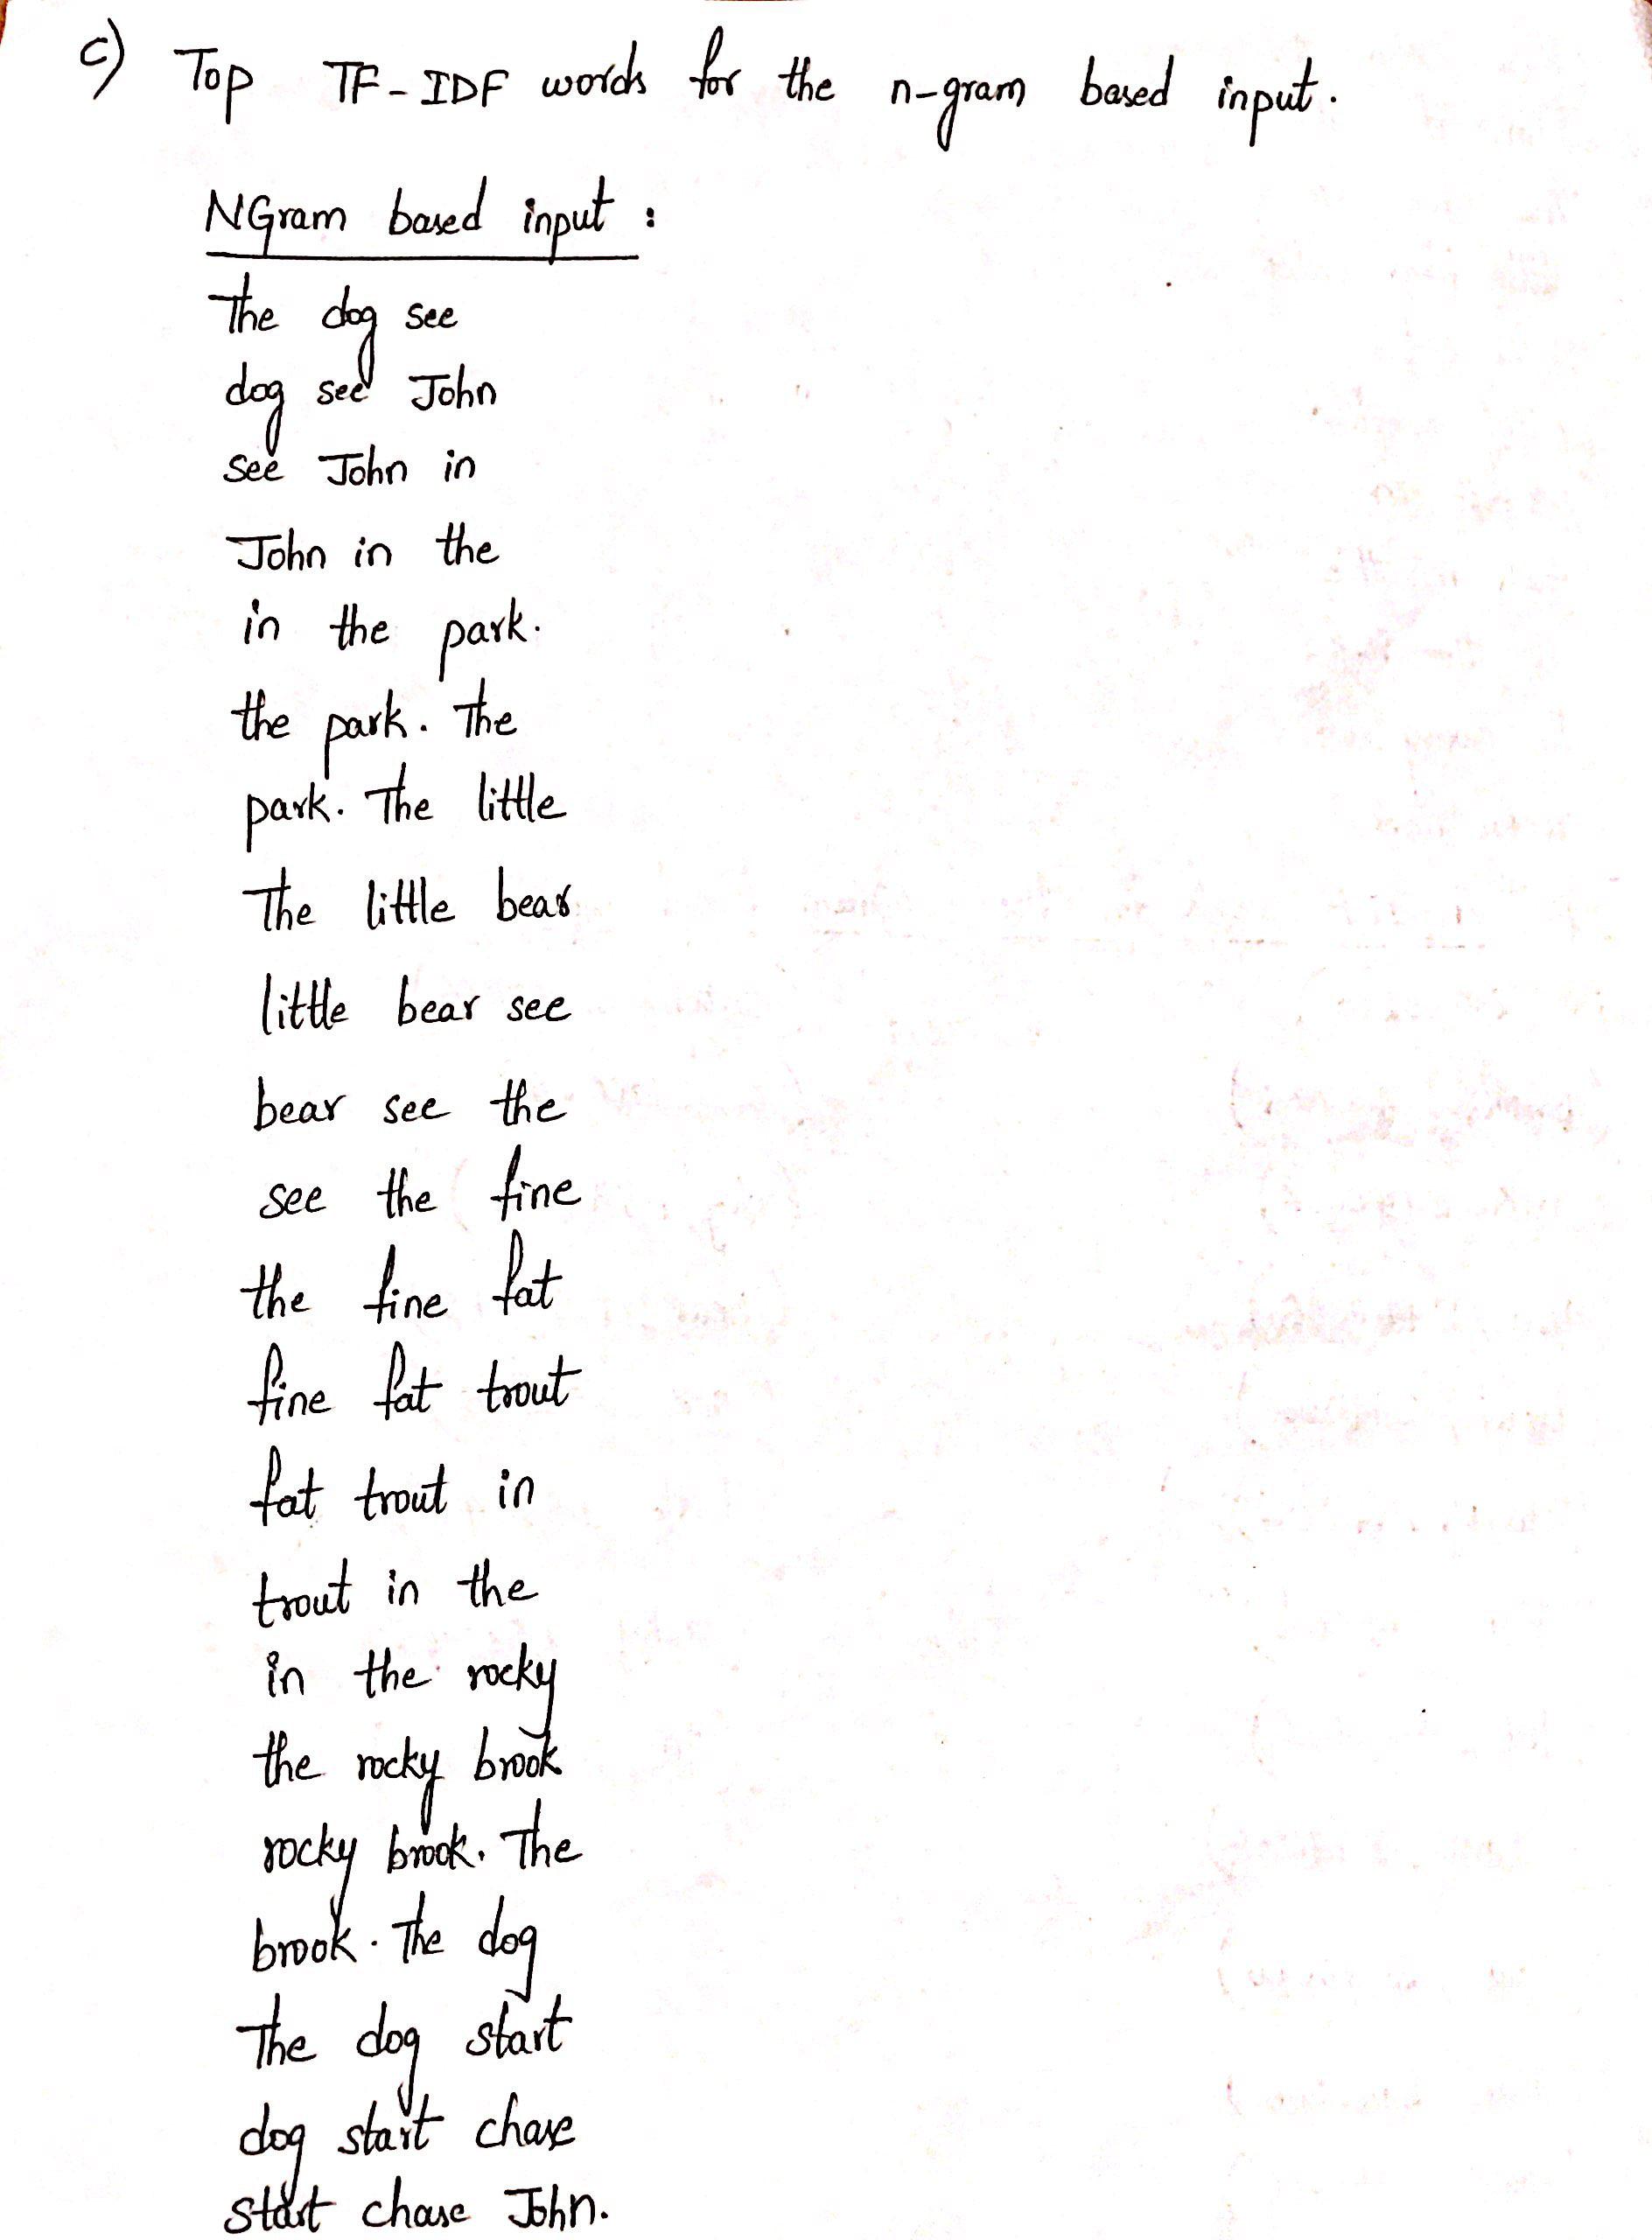 c) Top TF-IDF words for the n-gram based input.
NGram based input :
The dog see
dog see John
see John in
John in the
in the park.
the park. The
park. The little
The little bear
little bear see
bear see the
see the fine
the fine fat
fine fat trout
fat trout in
trout in the
in the rocky
the rocky brook
rocky brook. The
brook. The dog
The dog start
dog start chase
start chase John.